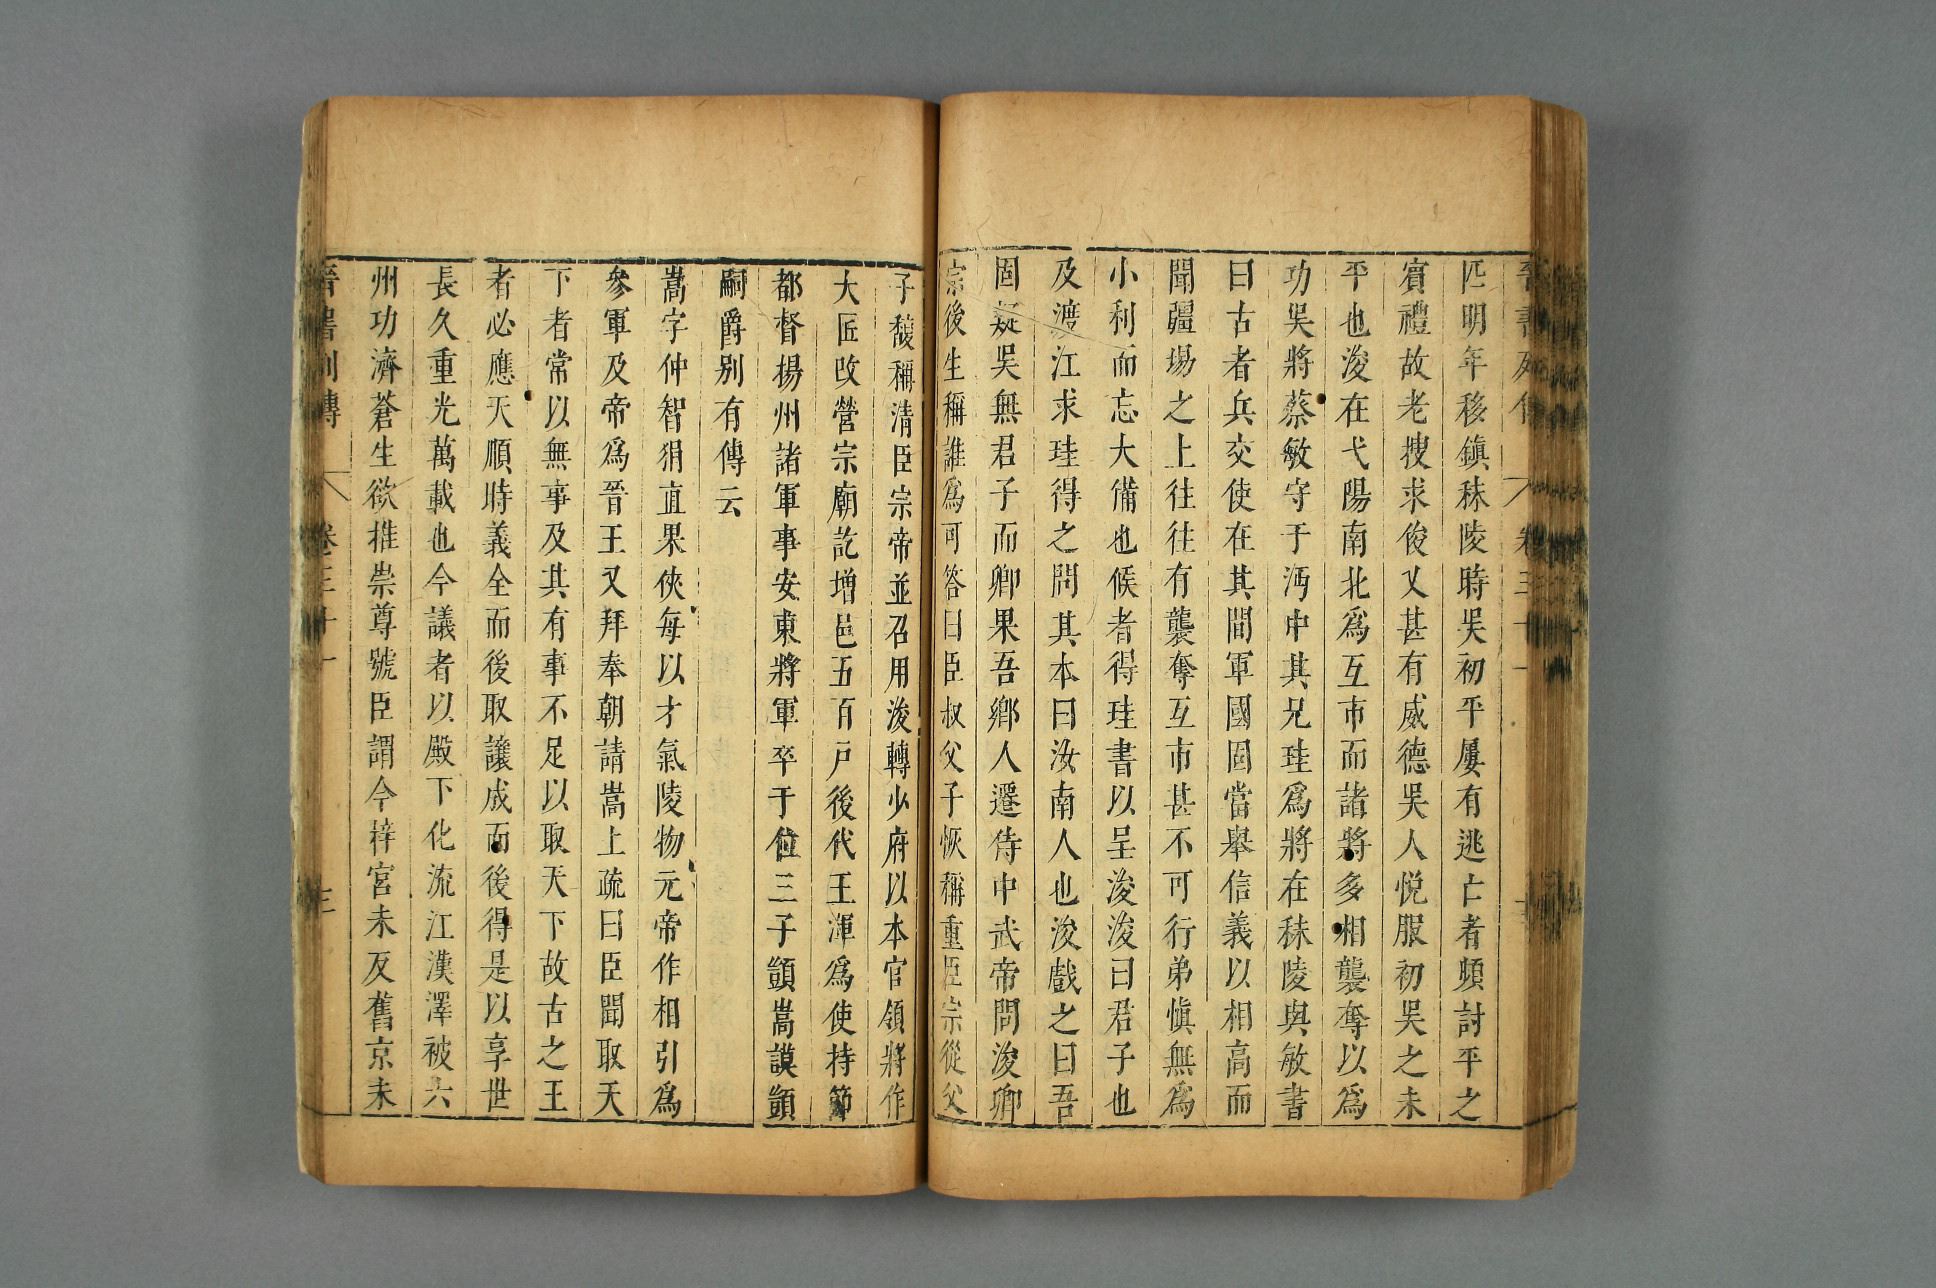 晉書列傳 卷三十一
匹明年移鎮秣陵時吳初平屢有逃亡者頻討平之
賓禮故老搜求俊乂甚有威德吳人悅服初吳之未
平也浚在弋陽南北爲互市而諸將多相襲奪以爲
功吳將蔡敏守于沔中其兄珪爲將在秣陵與敏書
曰古者兵交使在其間軍國固當舉信義以相高而
聞疆場之上往往有襲奪互市甚不可行弟慎無爲
小利而忘大備也候者得珪書以呈浚浚曰君子也
及渡江求珪得之問其本曰汝南人也浚戲之曰吾
固疑吳無君子而卿果吾鄉人遷侍中武帝問浚卿
宗後生稱誰爲可答曰臣叔父子恢稱重臣宗從父
子馥稱清臣宗帝並召用浚轉少府以本官領將作
大匠改營宗廟訖增邑五百戶後代王渾爲使持節
都督揚州諸軍事安東將軍卒于位三子顗嵩謨顗
嗣爵別有傳云
嵩字仲智狷直果俠每以才氣陵物元帝作相引爲
參軍及帝爲晉王又拜奉朝請嵩上疏曰臣聞取天
下者常以無事及其有事不足以取天下故古之王
者必應天順時義全而後取讓成而後得是以享世
長久重光萬載也今議者以殿下化流江漢澤被六
州功濟蒼生欲推崇尊號臣謂今梓宮未反舊京未
晉書列傳 卷三十一